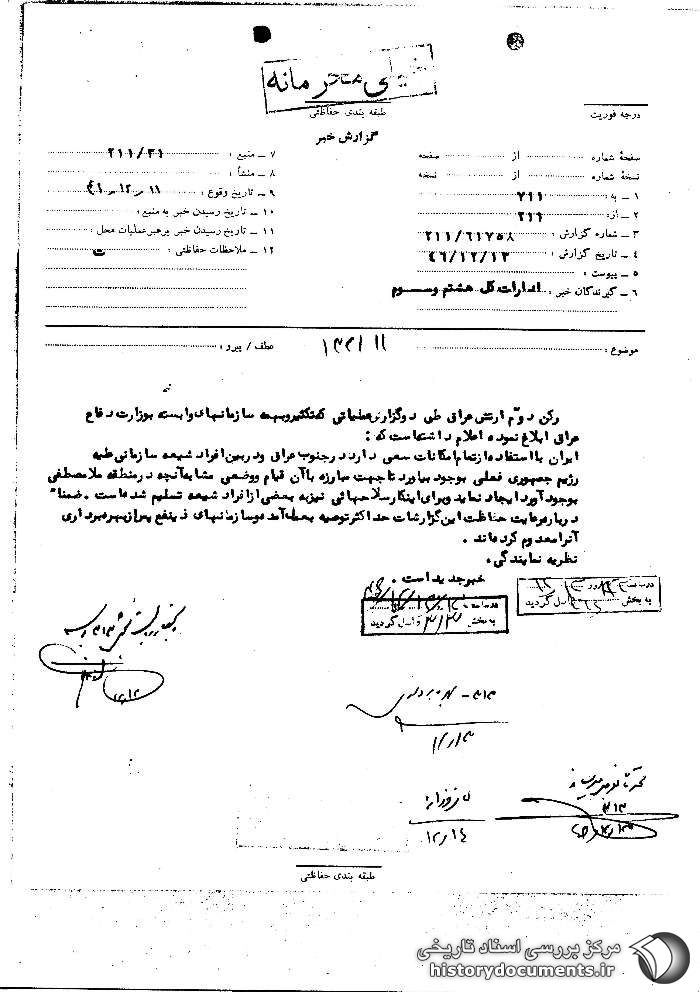 خیلی محرمانه
طبقه بندی حفاظتی
درجه فوریت
گزارش خبر
صفحهٔ شماره از صفحه
نسخهٔ شماره از نسخه
۱ ــ به : ۷۱۱
۲ ــ از: ۲۱۱
۳ ــ شماره گزارش : ۲۱۱/۶۱۷۵۸
۴ ــ تاریخ گزارش : ۴۶/۱۲/۱۳
۵ ــ پیوست :
۶ ــ گیرندگان خبر : ادارات کل هشتم و سوم
۷ ــ منبع : ۲۱۱/۳۱
۸ ــ منشأ :
۹ ــ تاریخ وقوع :
۱۰ ــ تاریخ رسیدن خبر به منبع :
۱۱ ــ تاریخ رسیدن خبر برهبر عملیات محل :
۱۲ ــ ملاحظات حفاظتی :
موضوع :
عطف / پیرو :
رکن دوم ارتش عراق طی دو گزارش عملیاتی که تکثیر و بهمه سازمانهای وابسته بوزارت دفاع
عراق ابلاغ نموده اعلام داشته است که :
ایران با استفاده از تمام امکانات سعی دارد در جنوب عراق و در بین افراد شیعه سازمانی علیه
رژیم جمهوری فعلی بوجود بیاورد تا جهت مبارزه با آن قیام و وضعی مشابه آنچه در منطقه ملامصطفی
بوجود آورد ایجاد نماید و برای اینکار سلاحهائی نیز به بعضی از افراد شیعه تسلیم شده است . ضمنا"
درباره رعایت حفاظت این گزارشات حداکثر توصیه بعمل آمده و سازمانهای ذینفع پس از بهره برداری
آنرا معدوم کرده اند .
نظریه نمایندگی .
خبر جدید است .
به بخش ۳۱۳ واصل گردید
به بخش واصل گردید
۱۲/۱۳
۱۲/۱۴
طبقه بندی حفاظتی
مرکز بررسی اسناد تاریخی
historydocuments.ir